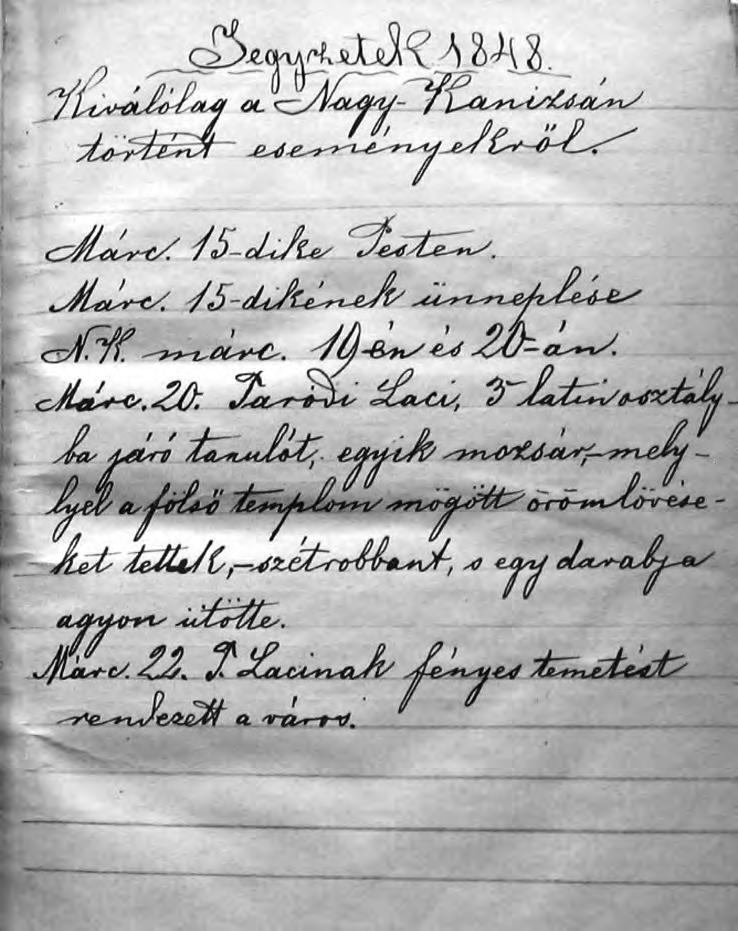 Jegyzetek 1848.
Kiválólag a Nagy-Kanizsán
történt eseményekről.
Márc. 15-dike Pesten.
Márc. 15-dikének ünneplése
N.K. márc. 19-én és 20-án.
Márc. 20. Paródi Laci, 3 latin osztály-
ba járó tanulót, egyik mozsár,-mely-
lyel a fölső templom mögött örömlövése-
ket tettek,-szétrobbant, s egy darabja
agyon ütötte.
Márc. 22. P. Lacinak fényes temetést
rendezett a város.